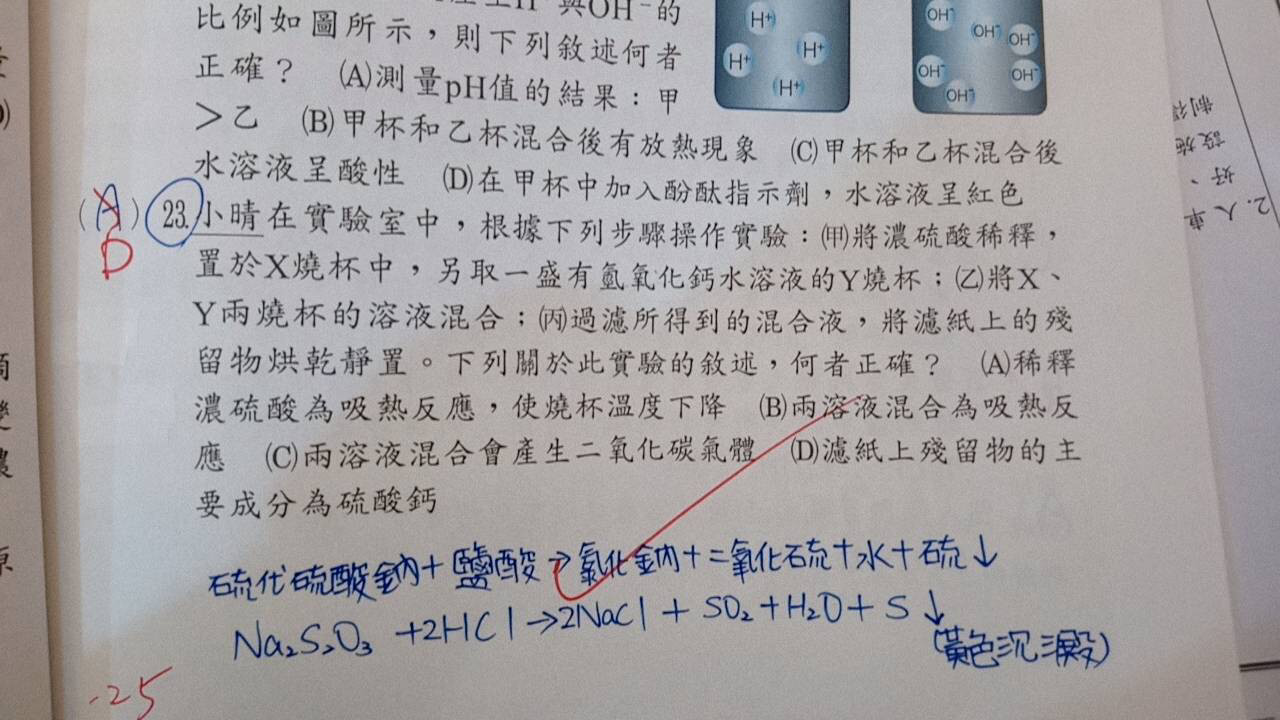 與OH⁻的
比例如圖所示，則下列敘述何者
正確？ (A)測量pH值的結果：甲
＞乙 (B)甲杯和乙杯混合後有放熱現象 (C)甲杯和乙杯混合後
水溶液呈酸性 (D)在甲杯中加入酚酞指示劑，水溶液呈紅色
H⁺
H⁺
H⁺
H⁺
OH⁻
OH⁻
OH⁻
OH⁻
OH⁻
OH⁻
(A) 23.小晴在實驗室中，根據下列步驟操作實驗：(甲)將濃硫酸稀釋，
D
置於X燒杯中，另取一盛有氫氧化鈣水溶液的Y燒杯；(乙)將X、
Y兩燒杯的溶液混合；(丙)過濾所得到的混合液，將濾紙上的殘
留物烘乾靜置。下列關於此實驗的敘述，何者正確？ (A)稀釋
濃硫酸為吸熱反應，使燒杯溫度下降 (B)兩溶液混合為吸熱反
應 (C)兩溶液混合會產生二氧化碳氣體 (D)濾紙上殘留物的主
要成分為硫酸鈣
硫代硫酸鈉+鹽酸→氯化鈉+二氧化硫+水+硫↓
Na₂S₂O₃ +2HCl→2NaCl + SO₂+H₂O+ S ↓
(黃色沉澱)
-25
2.人車
好、
設施